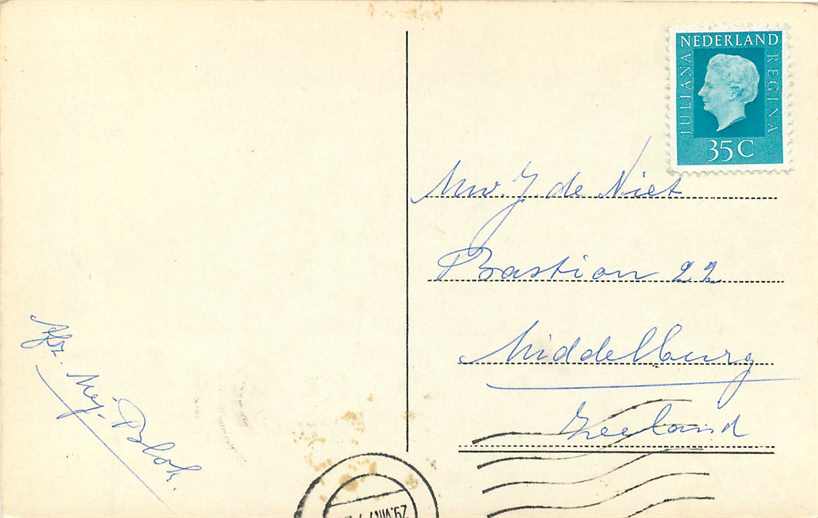 NEDERLAND
JULIANA
REGINA
35C
Mw. J de Niet
Bastion 22
Middelburg
Zeeland
Afz. Mej. Blok.